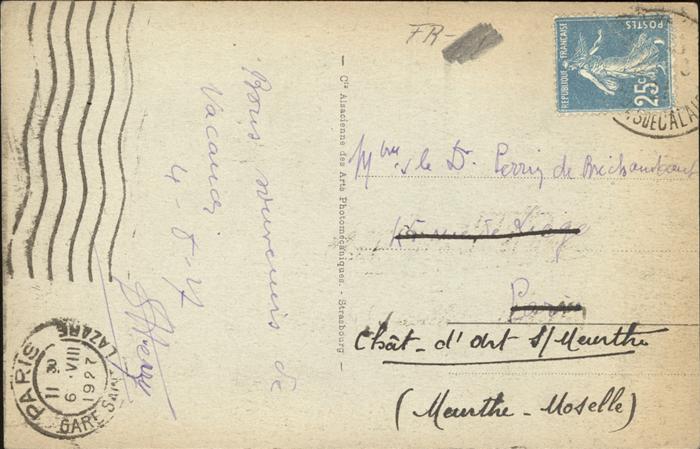 FR-
Bons souvenirs de
Vacances
4-8-27
Cie Alsacienne des Arts Photomécaniques. - Strasbourg
REPUBLIQUE FRANÇAISE
POSTES
25c
PAS DE CALAIS
Mme & le Dr. Perrin de Brichambaut
Paris
Chât-d'Art S/Meurthe
(Meurthe-Moselle)
PARIS
GARE SAINT LAZARE
11 30
6 · VIII
1927